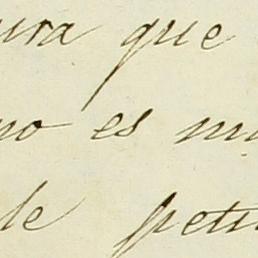 ura que
no es m
de petu